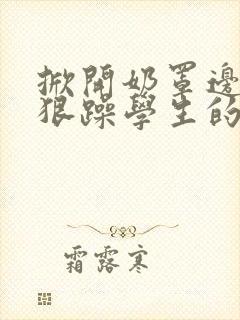 掀開奶罩邊
狠躁學生的
霜露寒